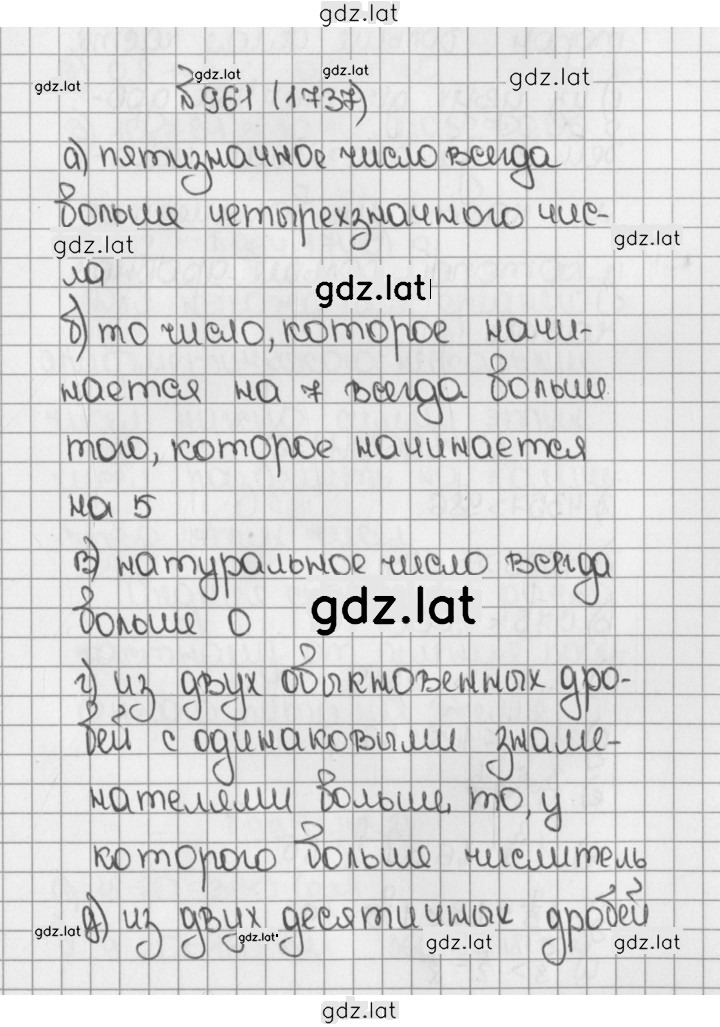 gdz.lat
gdz.lat gdz.lat gdz.lat gdz.lat
№961 (1737)
а) пятизначное число всегда
больше четырехзначного чис-
gdz.lat gdz.lat
ла
gdz.lat
б) то число, которое начи-
нается на 7 всегда больше
того, которое начинается
на 5
в) натуральное число всегда
больше 0
gdz.lat
г) из двух обыкновенных дро-
бей с одинаковыми знаме-
нателями больше то, у
которого больше числитель
д) из двух десятичных дробей
gdz.lat gdz.lat gdz.lat gdz.lat
gdz.lat